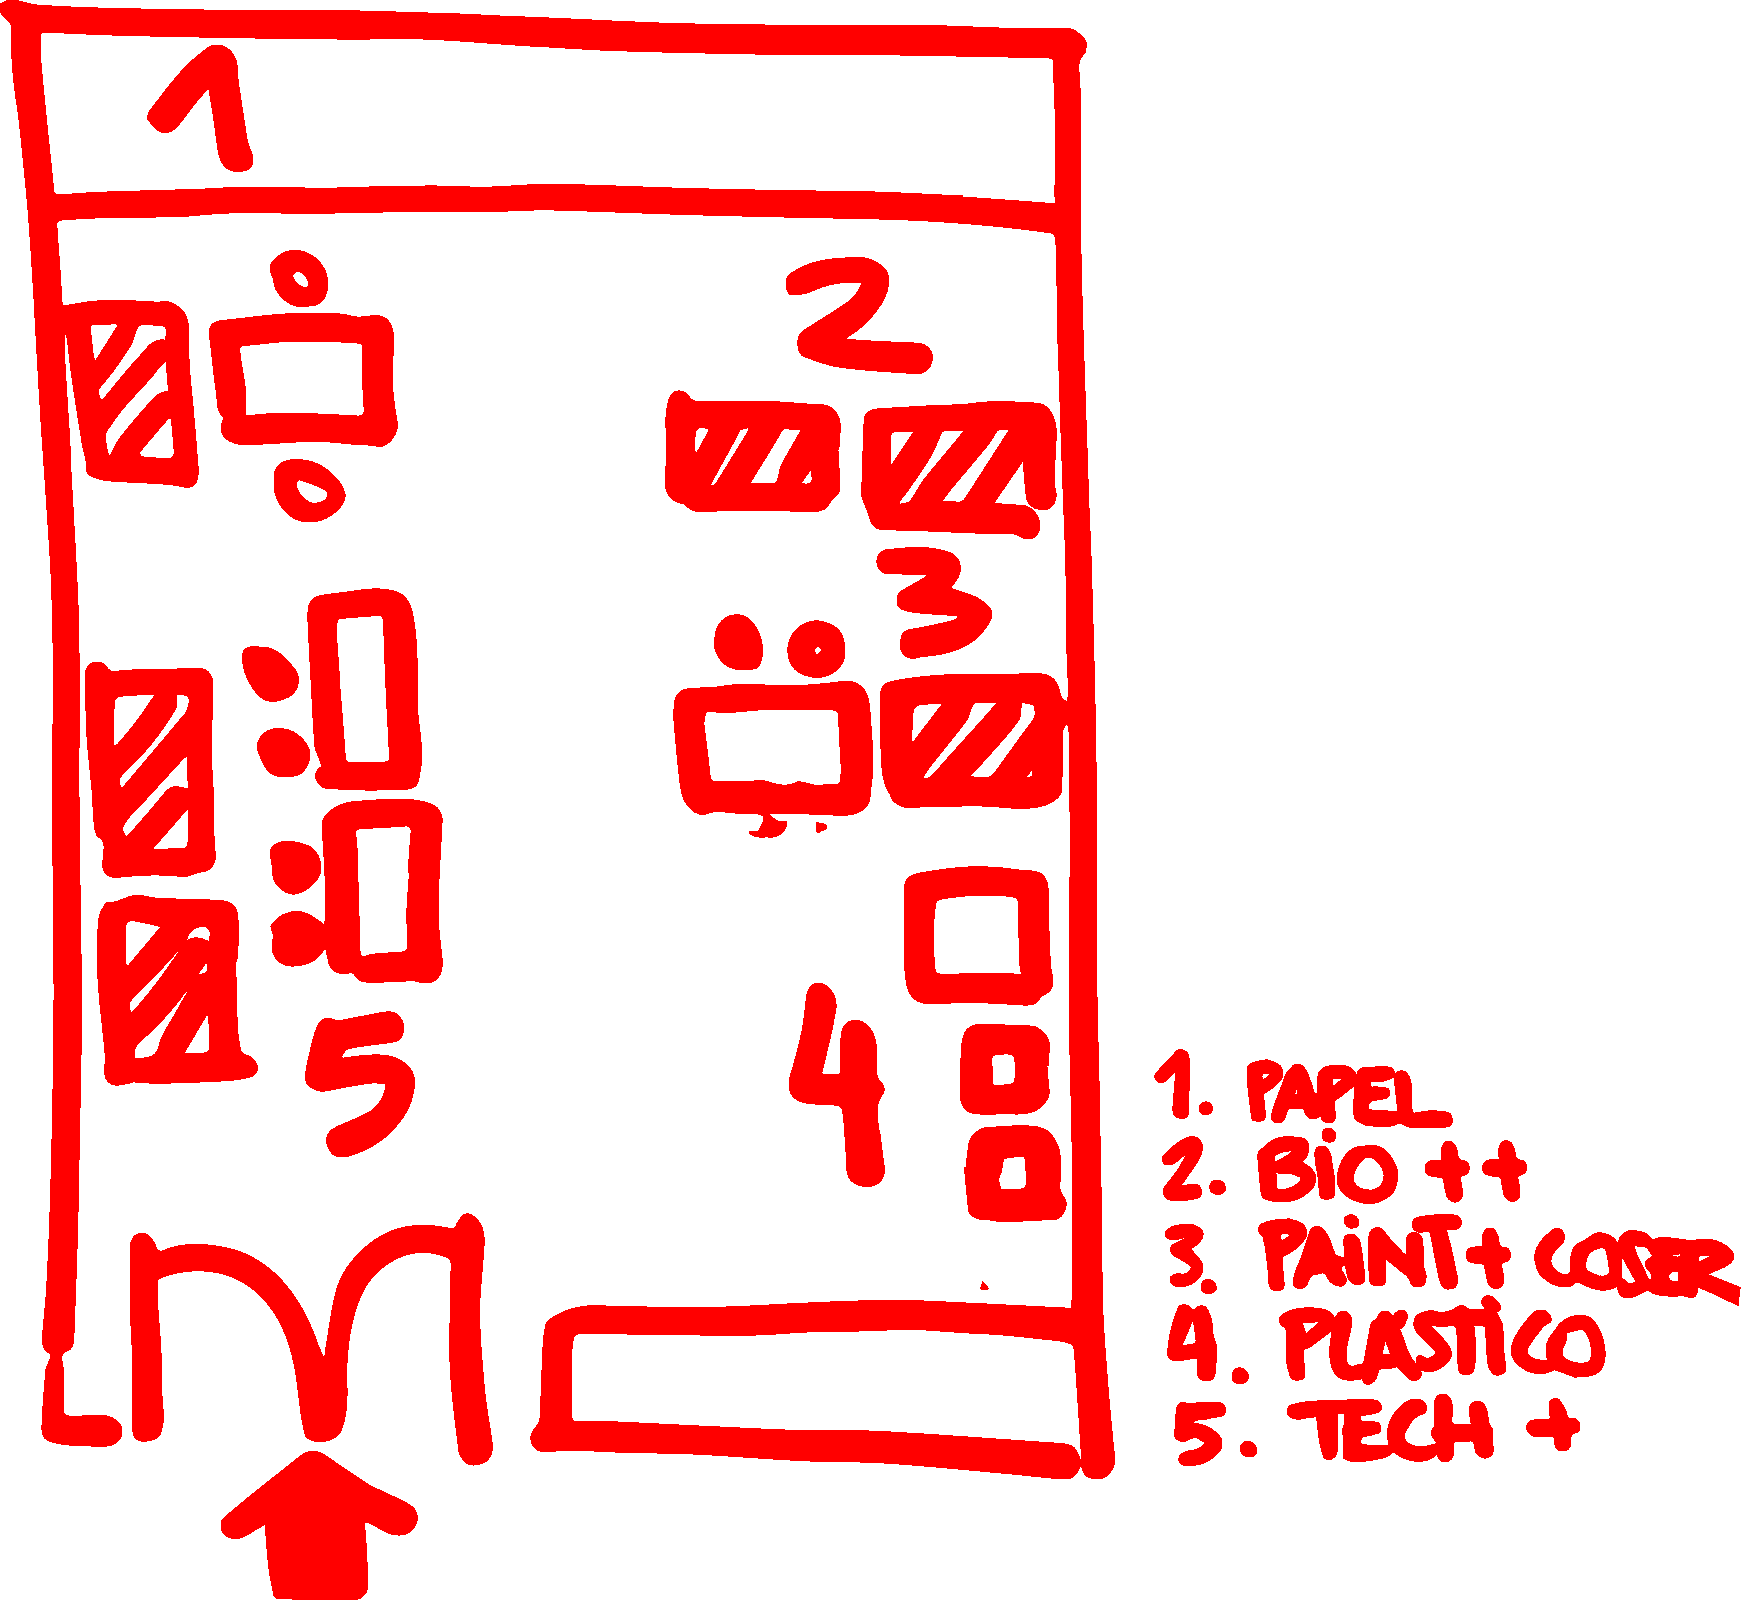 1
2
3
4
5
1. PAPEL
2. BiO ++
3. PAiNT + COSER
4. PLASTiCO
5. TECH +